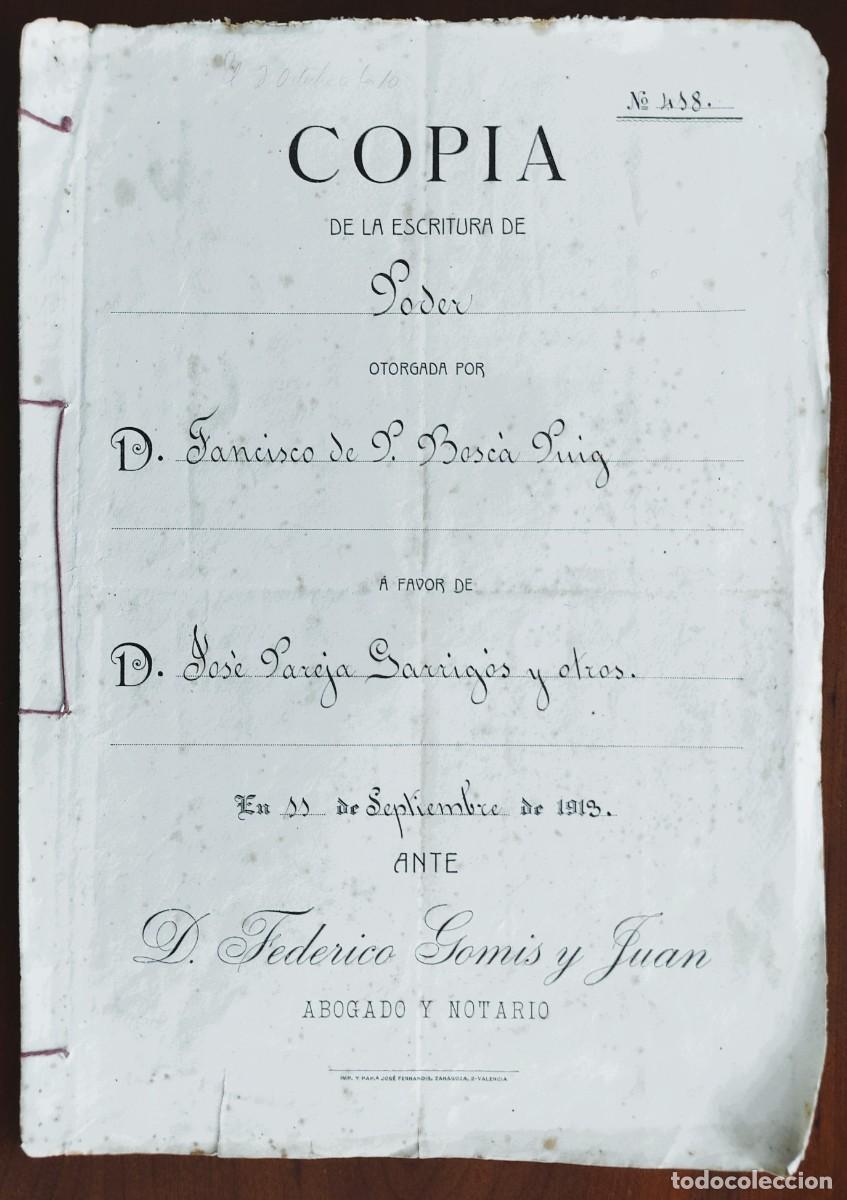 Nº 418.
COPIA
DE LA ESCRITURA DE
Poder
OTORGADA POR
D. Fancisco de P. Boscà Puig
Á FAVOR DE
D. Josè Pareja Garrigòs y otros.
En 11 de Septiembre de 1913.
ANTE
D. Federico Gomis y Juan
ABOGADO Y NOTARIO
IMP. Y PAP.A JOSÉ FERNANDIS, ZARAGOZA, 2-VALENCIA
todocoleccion